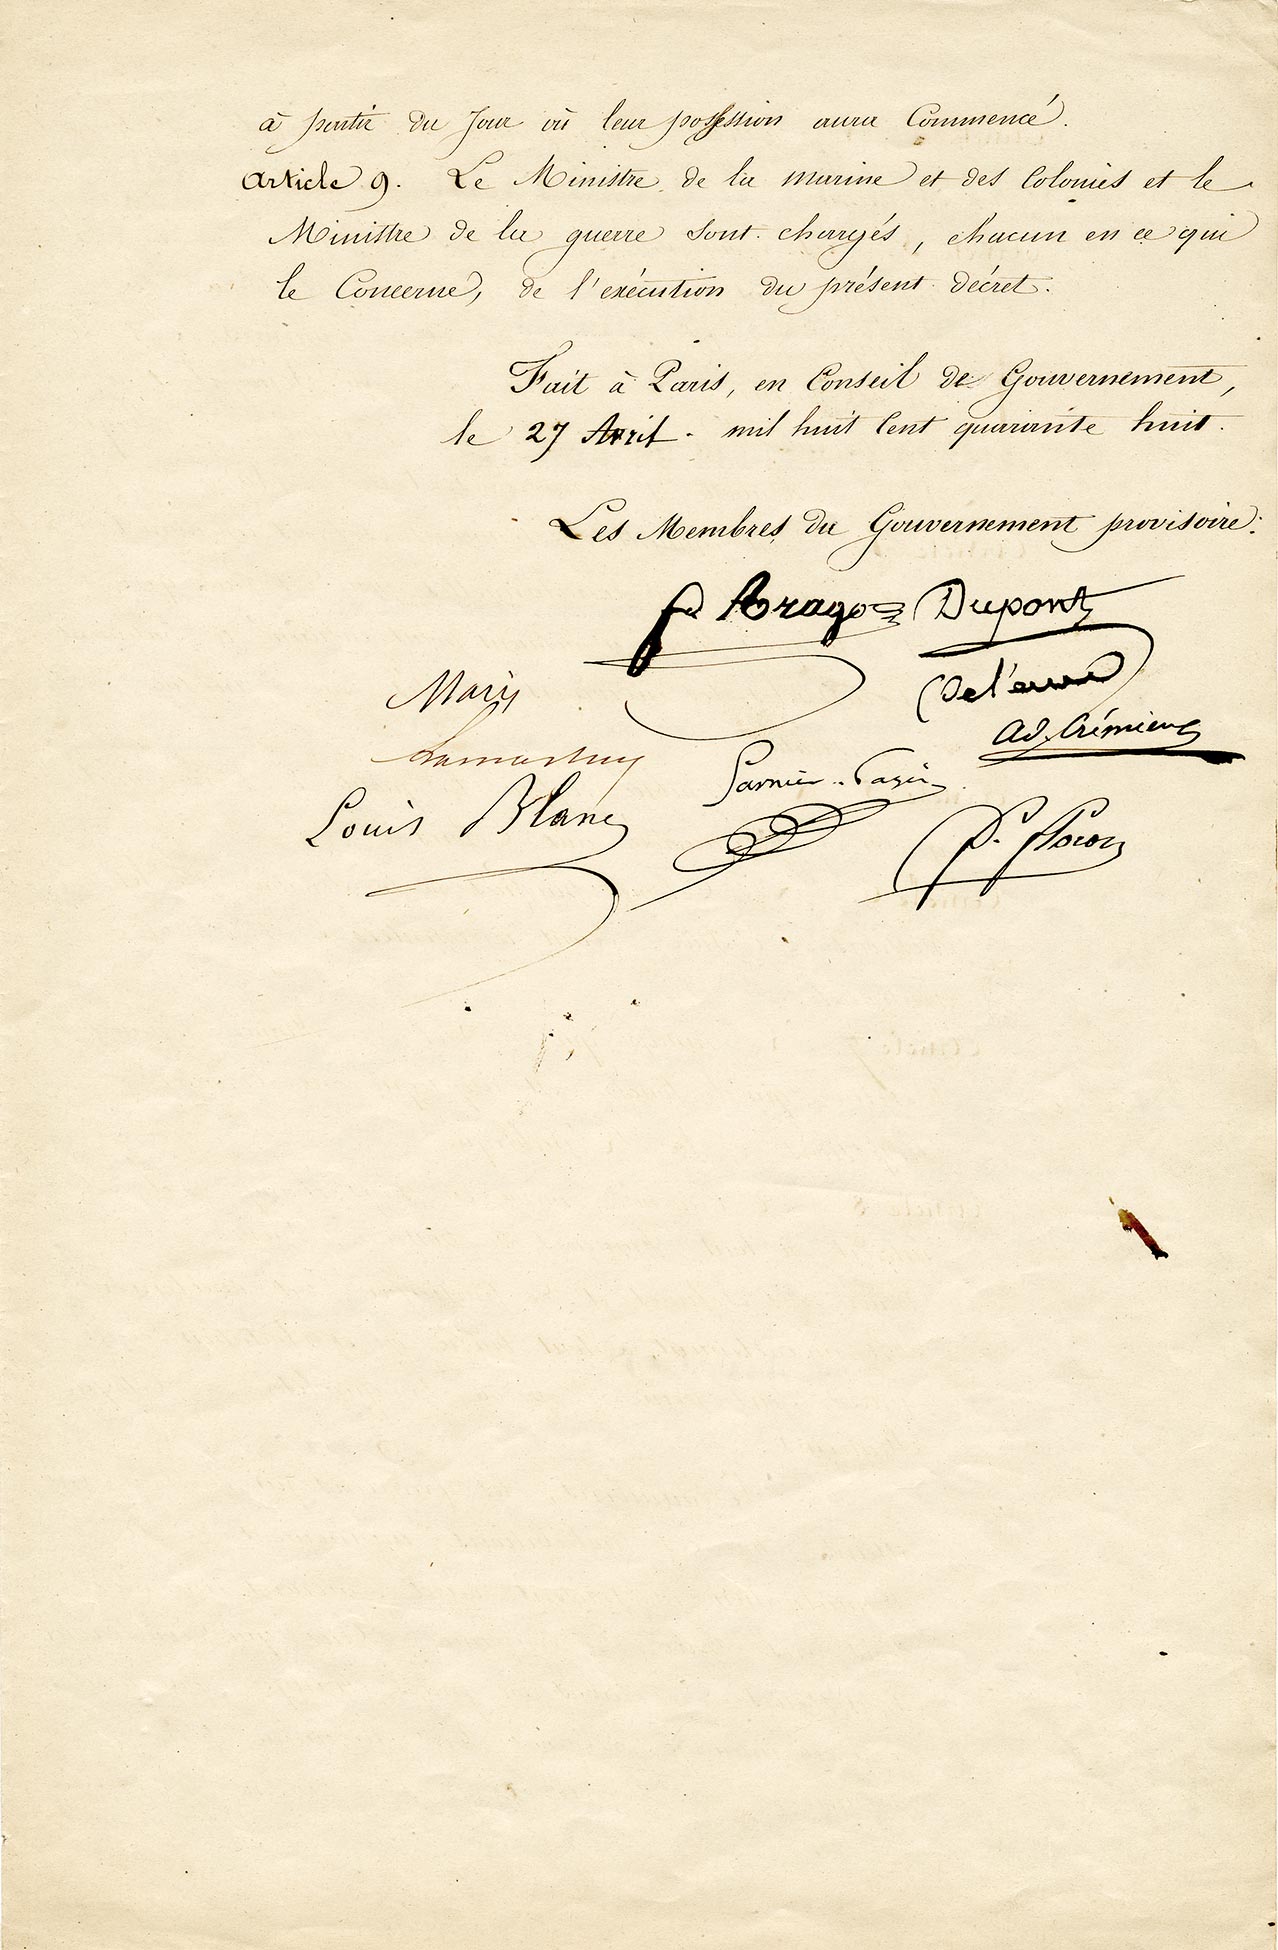 à partir du Jour où leur possession aura Commencé.
Article 9. Le Ministre de la marine et des Colonies et le
Ministre de la guerre sont chargés, chacun en ce qui
le Concerne, de l'exécution du présent décret.
Fait à Paris, en Conseil de Gouvernement,
le 27 Avril. mil huit Cent quarante huit.
Les Membres du Gouvernement provisoire:
F. Arago Dupont
Marie De l'eure
Ad. Crémieux
Lamartine Garnier-Pagès
Louis Blanc F. Flocon